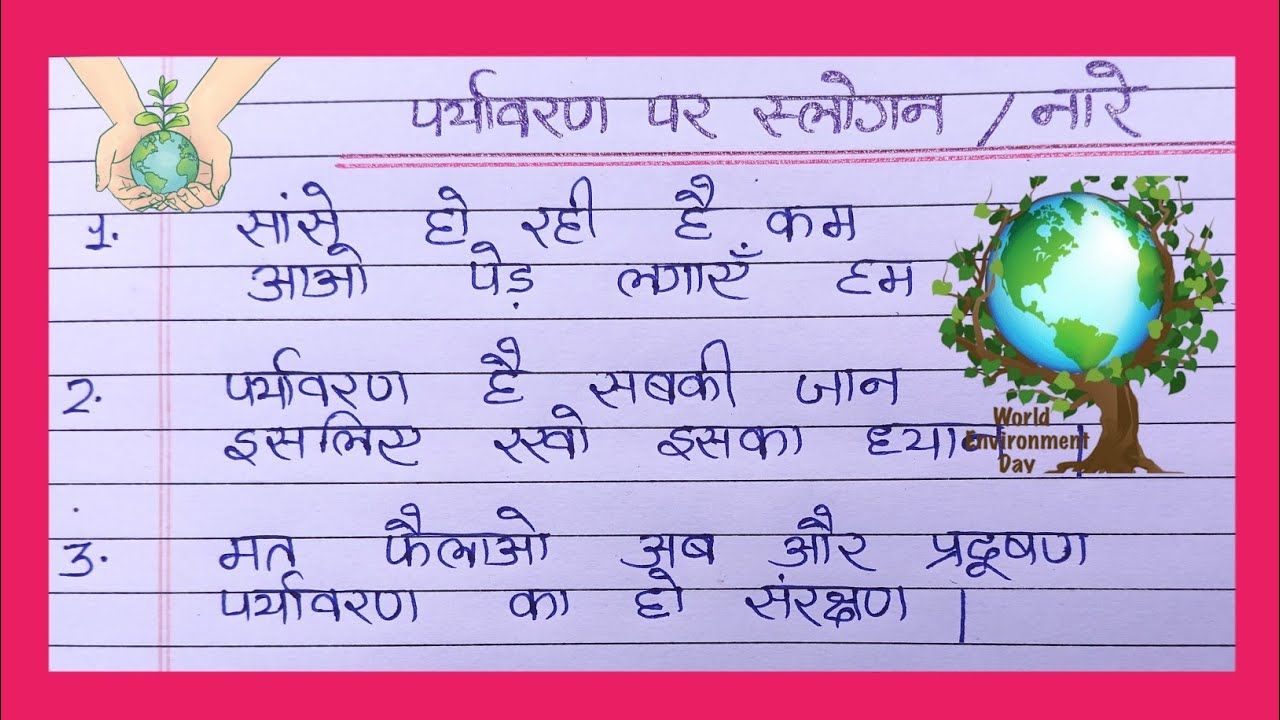 पर्यावरण पर स्लोगन / नारे
1. सांसे हो रही है कम
आओ पेड़ लगाएँ हम
2. पर्यावरण है सबकी जान
इसलिए रखो इसका ध्यान |
World
Environment
Day
3. मत फैलाओ अब और प्रदूषण
पर्यावरण का हो संरक्षण |